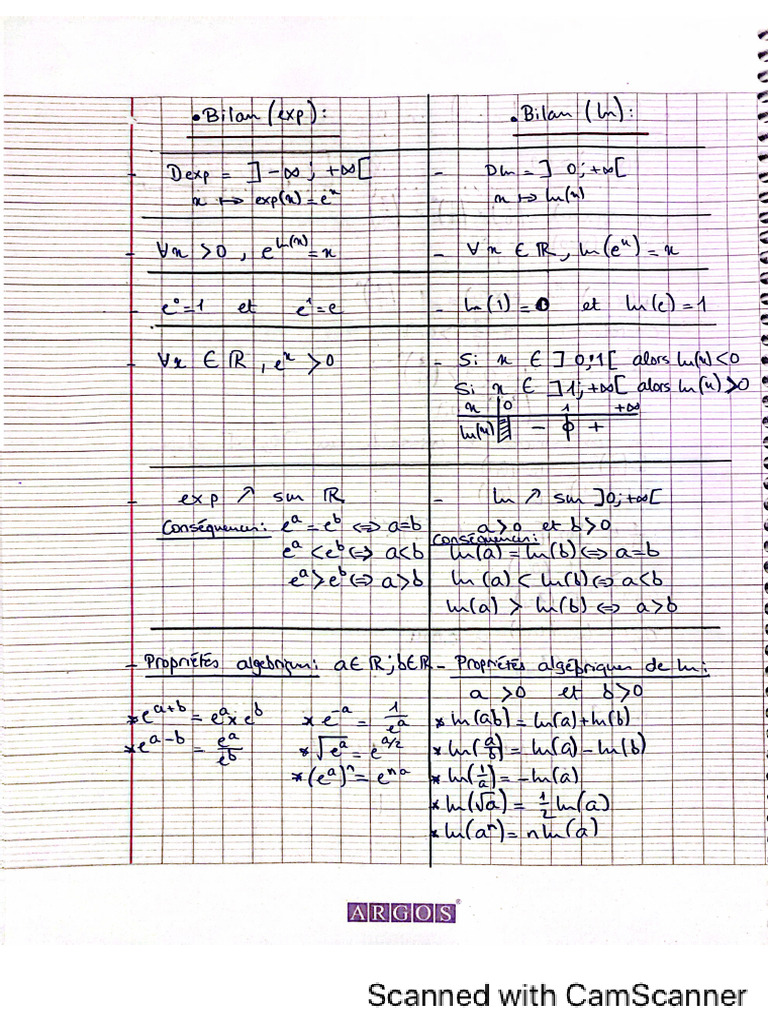 • Bilan (exp):
- Dexp = ]-∞; +∞[
x ↦ exp(x) = eˣ
- ∀x > 0, e^ln(x) = x
- e⁰=1 et e¹=e
- ∀x ∈ ℝ, eˣ > 0
- exp ↗ sur ℝ
Conséquences: e^a = e^b ⇔ a=b
e^a < e^b ⇔ a<b
e^a > e^b ⇔ a>b
- Propriétés algebriques: a∈ℝ; b∈ℝ
* e^(a+b) = e^a × e^b * e^(-a) = 1/e^a
* e^(a-b) = e^a/e^b * √(e^a) = e^(a/2)
* (e^a)^n = e^(na)
• Bilan (ln):
- Dln = ] 0; +∞[
x ↦ ln(x)
- ∀x ∈ ℝ, ln(eˣ) = x
- ln(1) = 0 et ln(e) = 1
- Si x ∈ ] 0;1[ alors ln(x) < 0
Si x ∈ ]1; +∞[ alors ln(x) > 0
x 0 1 +∞
ln(x) - 0 +
- ln ↗ sur ]0; +∞[
a > 0 et b > 0
Conséquences:
ln(a) = ln(b) ⇔ a=b
ln(a) < ln(b) ⇔ a<b
ln(a) > ln(b) ⇔ a>b
- Propriétés algébriques de ln:
a > 0 et b > 0
* ln(ab) = ln(a)+ln(b)
* ln(a/b) = ln(a) - ln(b)
* ln(1/a) = -ln(a)
* ln(√a) = 1/2 ln(a)
* ln(a^n) = n ln(a)
ARGOS®
Scanned with CamScanner